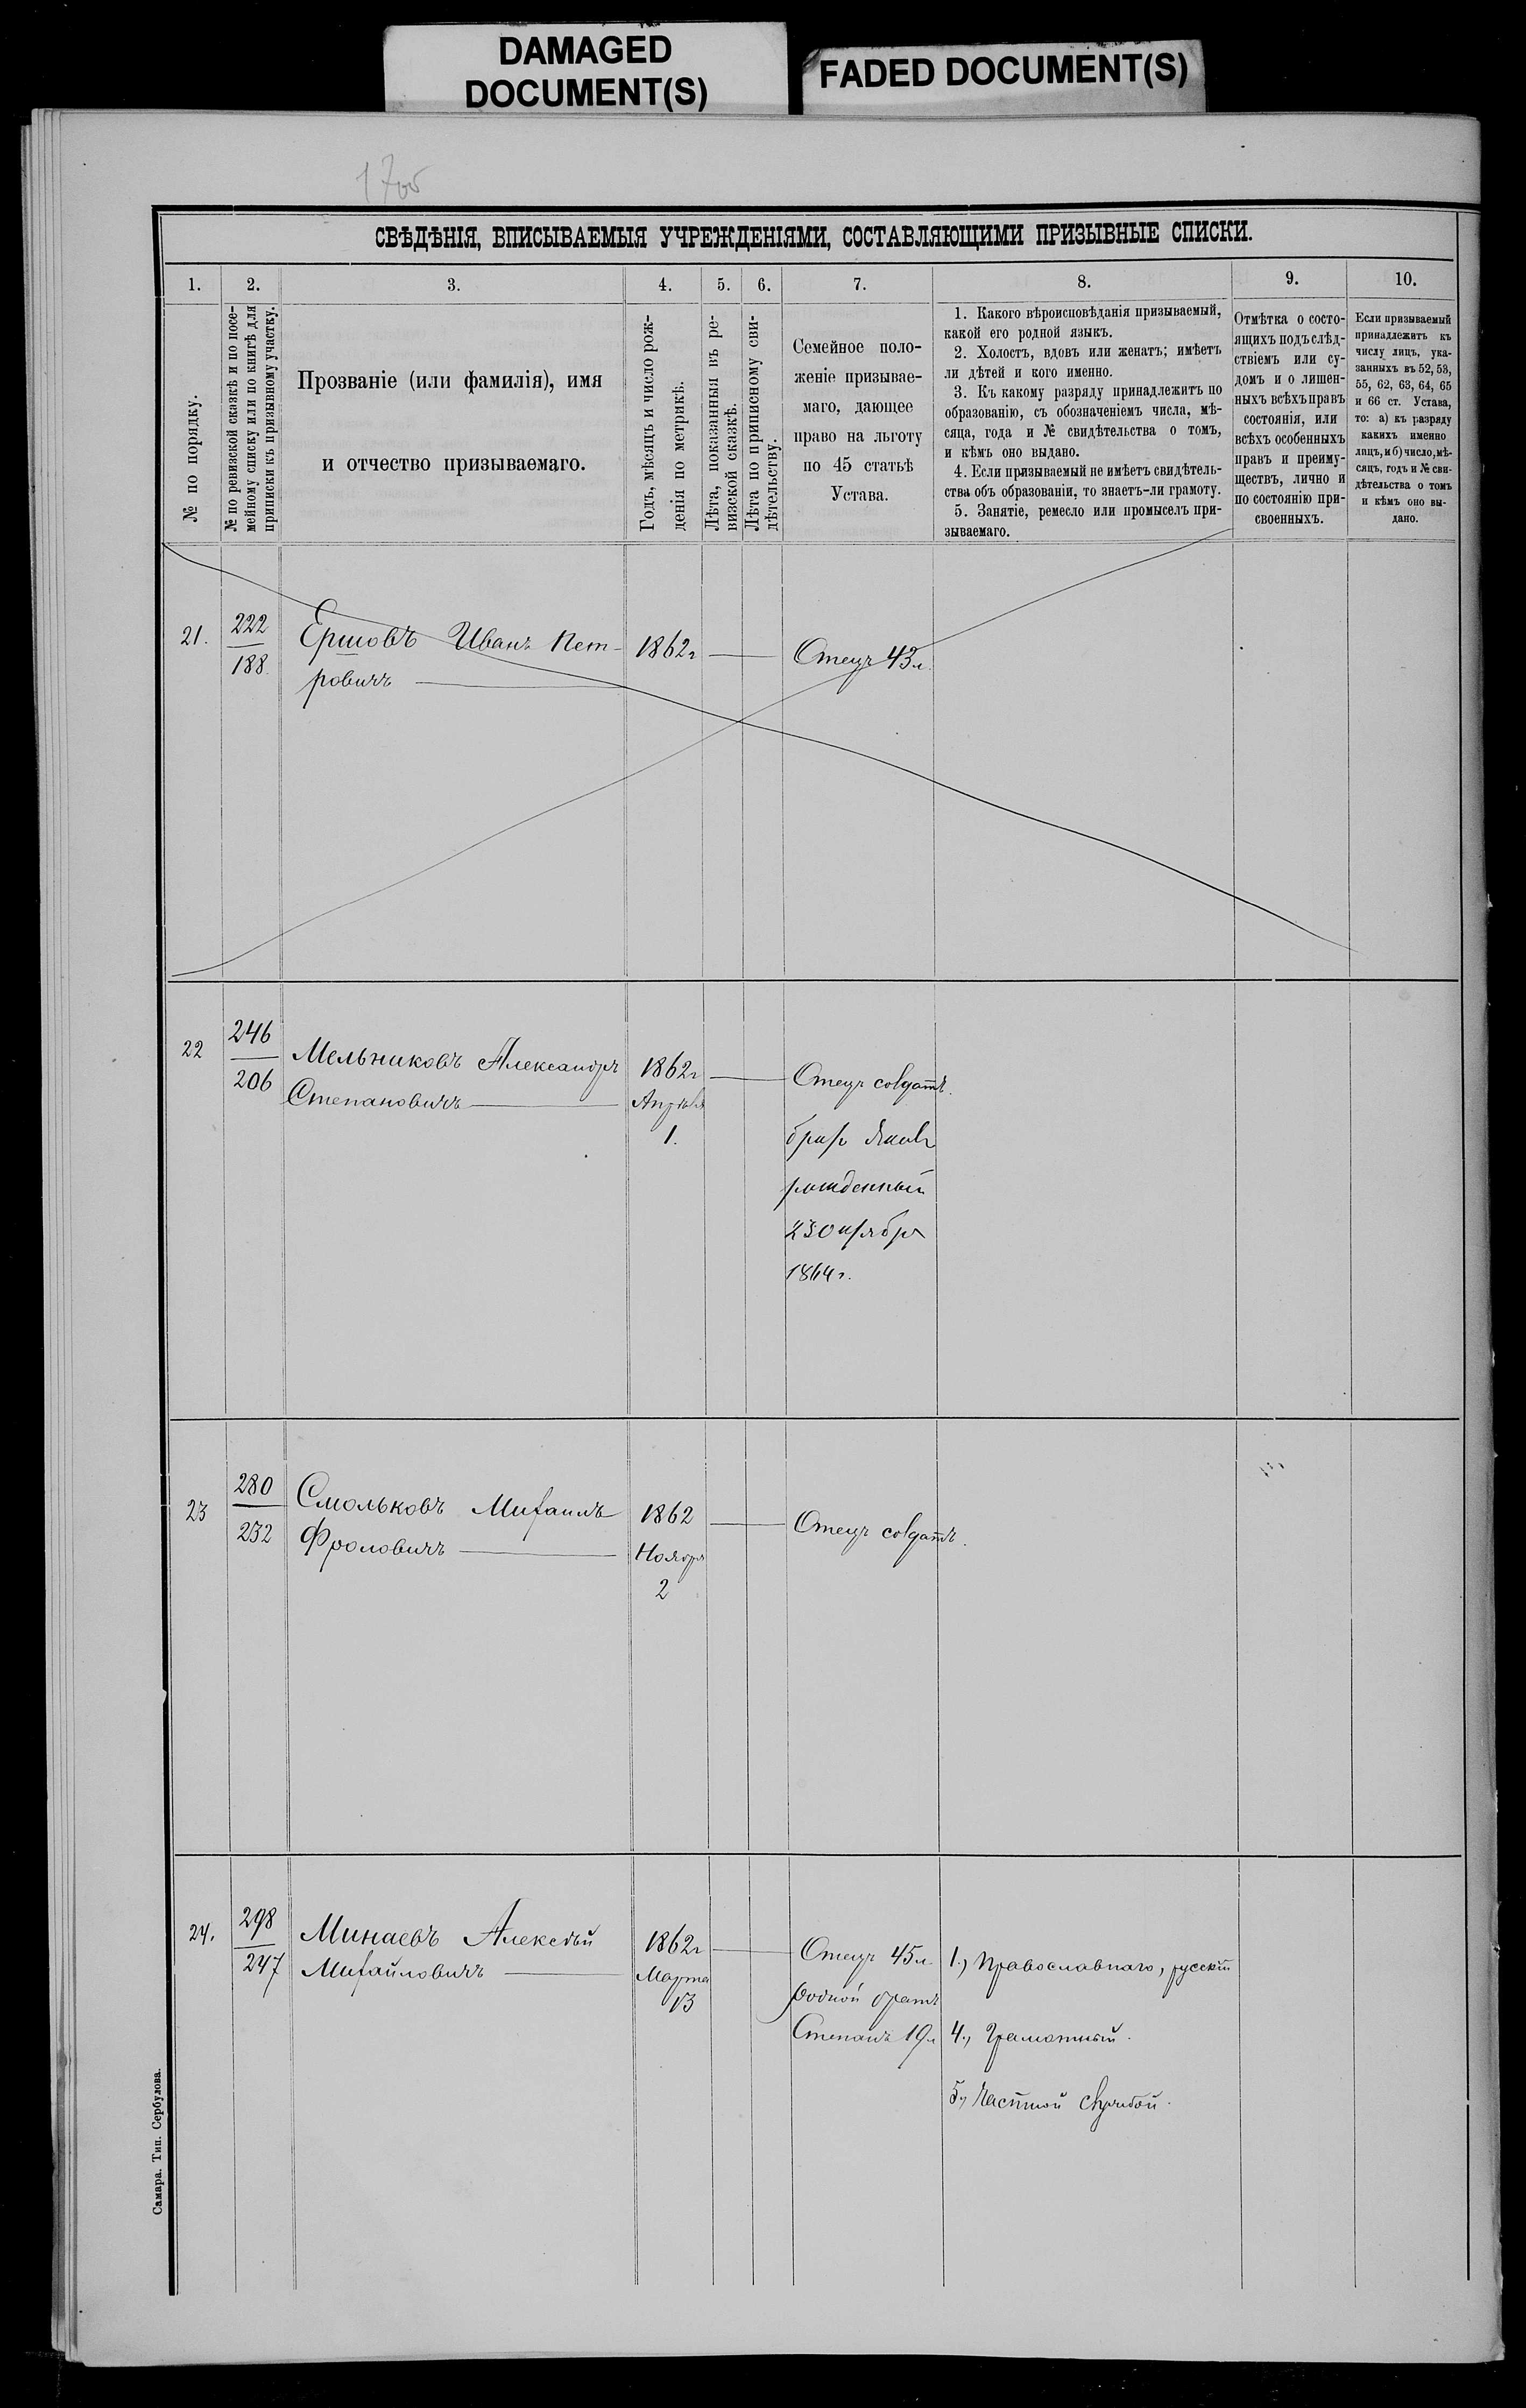 DAMAGED
DOCUMENT(S)
FADED DOCUMENT(S)
СВѢДѢНІЯ, ВПИСЫВАЕМЫЯ УЧРЕЖДЕНІЯМИ, СОСТАВЛЯЮЩИМИ ПРИЗЫВНЫЕ СПИСКИ.
1.
2.
3.
4.
5.
6.
7.
8.
9.
10.
№ по порядку.
№ по ревизской сказкѣ и по посе-
мейному списку или по книгѣ для
приписки къ призывному участку.
Прозваніе (или фамилія), имя
и отчество призываемаго.
Годъ, мѣсяцъ и число рож-
денія по метрикѣ.
Лѣта, показанныя въ ре-
визской сказкѣ.
Лѣта по приписному сви-
дѣтельству.
Семейное поло-
женіе призывае-
маго, дающее
право на льготу
по 45 статьѣ
Устава.
1. Какого вѣроисповѣданія призываемый,
какой его родной языкъ.
2. Холостъ, вдовъ или женатъ; имѣетъ
ли дѣтей и кого именно.
3. Къ какому разряду принадлежитъ по
образованію, съ обозначеніемъ числа, мѣ-
сяца, года и № свидѣтельства о томъ,
и кѣмъ оно выдано.
4. Если призываемый не имѣетъ свидѣтель-
ства объ образованіи, то знаетъ-ли грамоту.
5. Занятіе, ремесло или промыселъ при-
зываемаго.
Отмѣтка о состо-
ящихъ подъ слѣд-
ствіемъ или су-
домъ и о лишен-
ныхъ всѣхъ правъ
состоянія, или
всѣхъ особенныхъ
правъ и преиму-
ществъ, лично и
по состоянію при-
своенныхъ.
Если призываемый
принадлежитъ къ
числу лицъ, ука-
занныхъ въ 52, 53,
55, 62, 63, 64, 65
и 66 ст. Устава,
то: а) къ разряду
какихъ именно
лицъ, и б) число, мѣ-
сяцъ, годъ и № сви-
дѣтельства о томъ
и кѣмъ оно вы-
дано.
21.
222
188.
Ершовъ Иванъ Пет-
ровичъ
1862г
Отецъ 43л.
22
246
206
Мельниковъ Александръ
Степановичъ
1862г
Апрѣля
1.
Отецъ солдатъ.
братъ Яковъ
рожденный
23 октября
1864г.
23
280
232
Смольковъ Михаилъ
Фроловичъ
1862
Ноября
2
Отецъ солдатъ.
24.
298
247
Минаевъ Алексѣй
Михайловичъ
1862г
Марта
13
Отецъ 45л.
родной братъ
Степанъ 19л
1.) Православнаго, русскій
4.) Грамотный.
5.) Частной службой.
Самара. Тип. Сербулова.